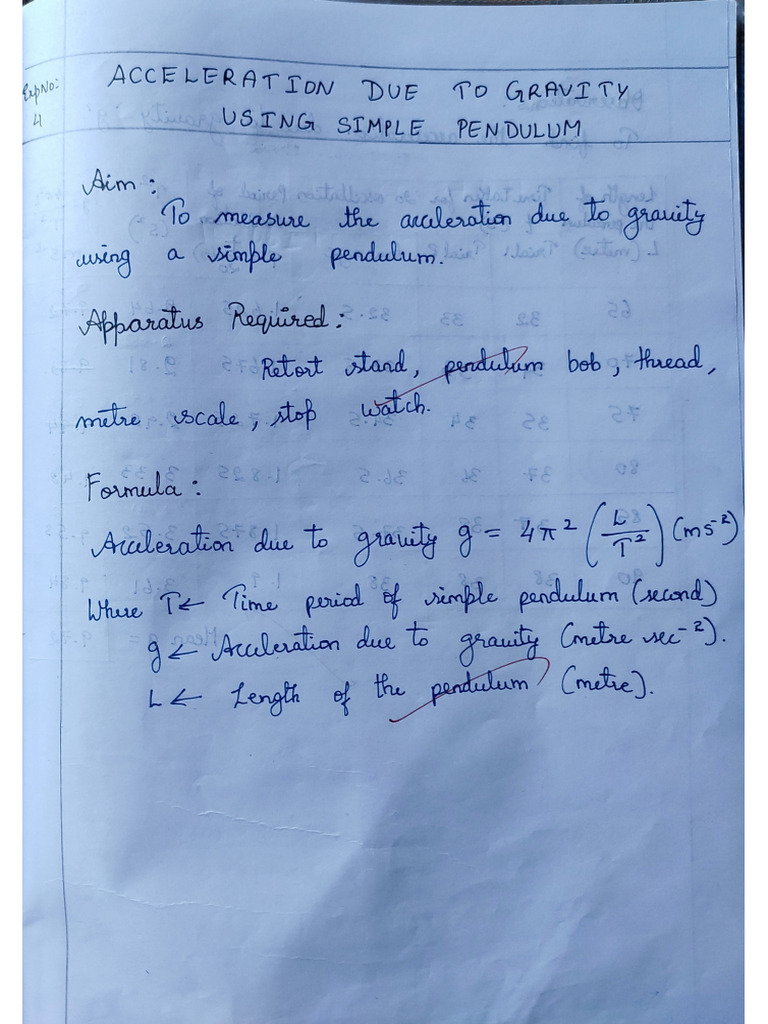 Exp No: 4
ACCELERATION DUE TO GRAVITY
USING SIMPLE PENDULUM
Aim :
To measure the acceleration due to gravity
using a simple pendulum.
Apparatus Required :
Retort stand, pendulum bob, thread,
metre scale, stop watch.
Formula :
Acceleration due to gravity g = 4π² (L/T²) (ms⁻²)
Where T ← Time period of simple pendulum (second)
g ← Acceleration due to gravity (metre sec⁻²).
L ← Length of the pendulum (metre).